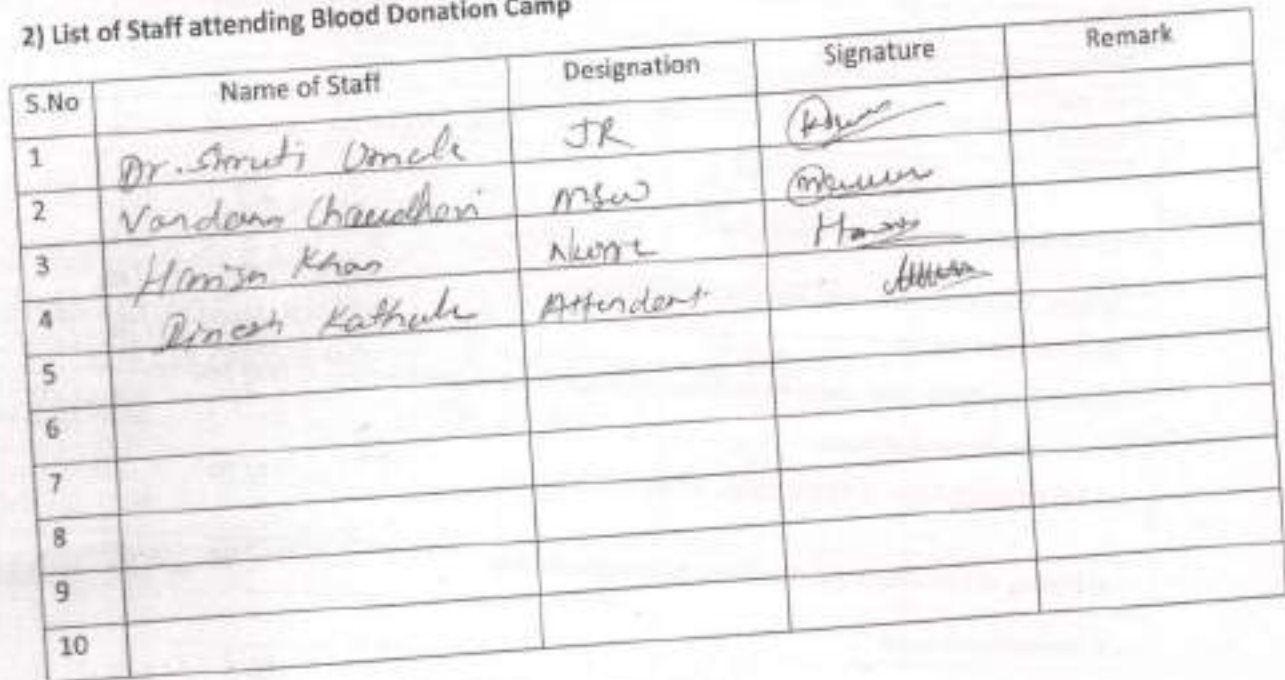 2) List of Staff attending Blood Donation Camp
S.No Name of Staff Designation Signature Remark
1 Dr. Shruti JR
2 Vandana Chaudhari MSW
3 Khan Nurse
4 Dinesh Kathale Attendent
5
6
7
8
9
10